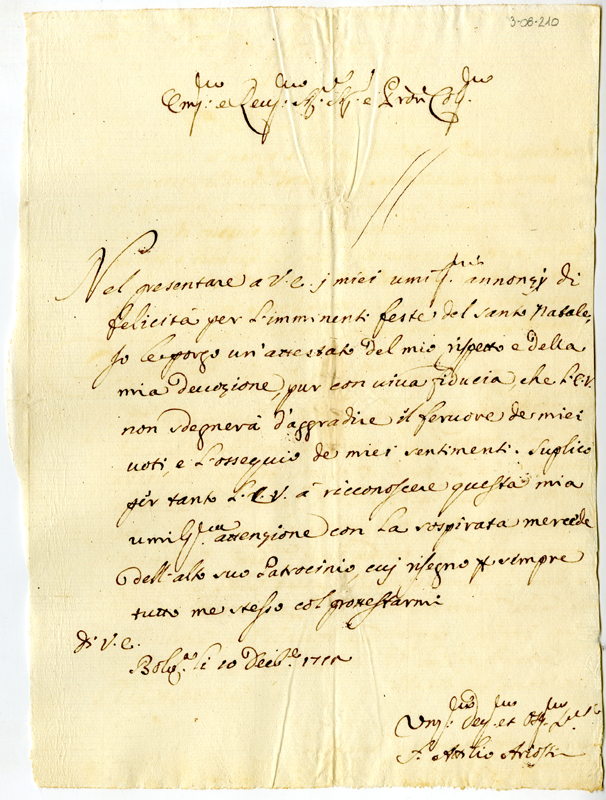 3-08-210
Em:mo e Reu:mo Sig:r Sig:r e Pron Col:mo
Nel presentare a V.E. j miei umilissi:mi annonzÿ di
felicità per l'imminenti feste del Santo Natale,
Io le porgo un'attestato del mio rispetto e della
mia deuozione, pur con uiua fiducia, che l'E.V.
non sdegnerà d'aggradire il feruore de miei
uoti, e l'ossequio de miei sentimenti. Suplico
per tanto l'E.V. à ricconoscere questa mia
umiliss:ma attenzione con la sospirata mercede
dell'alto suo Patrocinio, cuj risegno p sempre
tutto me stesso col protestarmi
di V.E.
Bolog:a li 10 Decēb:e
Um:mo Deu:mo et Obl:mo Ser:re
F. Attilio Ariosti